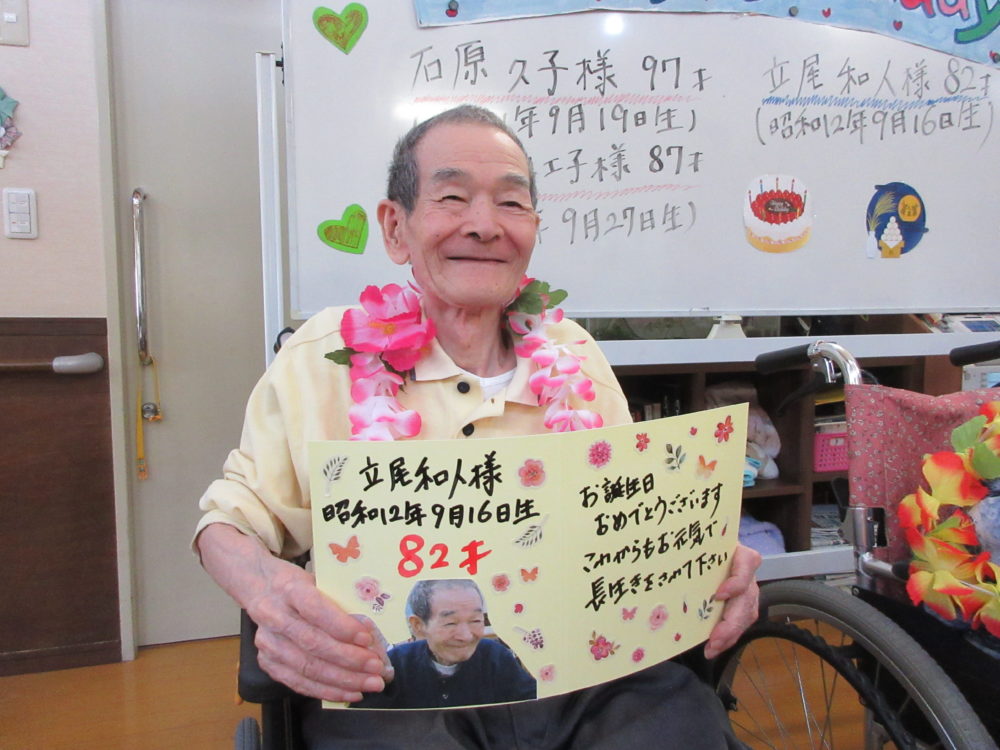 石原 久子様 97才
年9月19日生)
子様 87才
9月27日生)
立尾 和人様 82才
(昭和12年9月16日生)
立尾和人様
昭和12年9月16日生
82才
お誕生日
おめでとうございます
これからもお元気で
長生きをされて下さい